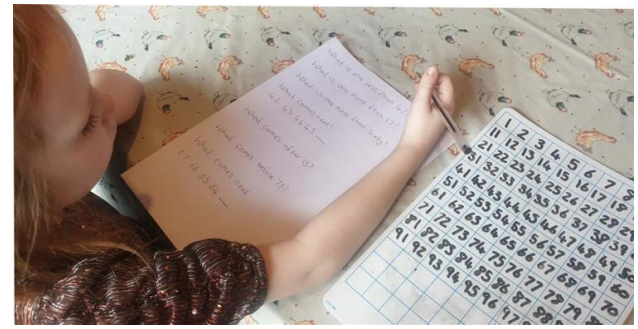 What is one less than 4?
What is one more than 17?
What is one more than sixty?
What comes next?
42 43 44 45 __
What comes after 13?
What comes before 79?
What comes next
67 66 65 64 __
1 2 3 4 5 6 7 8
11 12 13 14 15 16 17 18
21 22 23 24 25 26 27 28 29
31 32 33 34 35 36 37 38 39
41 42 43 44 45 46 47 48 49 50
51 52 53 54 55 56 57 58 59 60
61 62 63 64 65 66 67 68 69 70
71 72 73 74 75 76 77 78 79
81 82 83 84 85 86 87 88
91 92 93 94 95 96 97